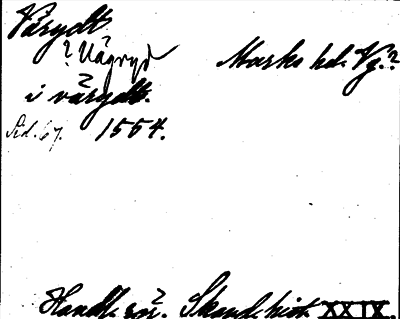 Vårydt
? Vägryd Marks hd. Vg.?
i vårydt.
Sid. 67. 1554.
Handl. rör. Skand. hist. XXIX.